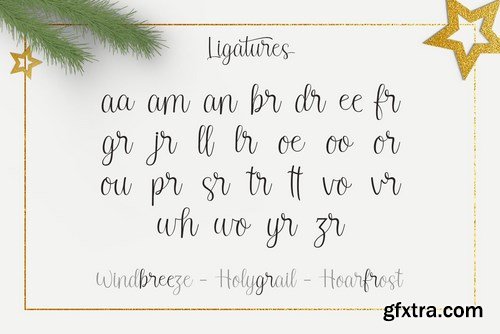 Ligatures
aa am an br dr ee fr
gr jr ll lr oe oo or
ou pr sr tr tt vo vr
wh wo yr zr
Windbreeze - Holygrail - Hoarfrost
gfxtra.com